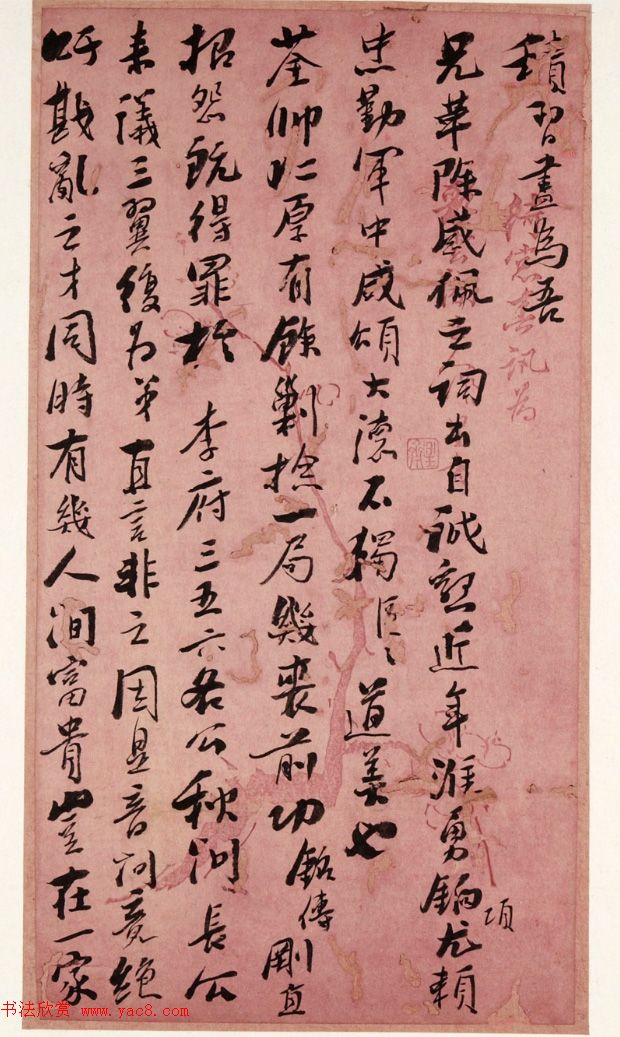 積習盡為吾
兄革除感佩之詞出自誠懇近年淮勇餉項尤賴
忠勤軍中咸頌大德不獨區區道美也
荃帥仁厚有餘剿捻一局幾喪前功銘傳剛直
招怨既得罪於 李府三五六各公秋間長公
來議三翼復為弟直言非之因是音問竟絕
戡亂之才同時有幾人間富貴豈在一家
书法欣赏 www.yac8.com